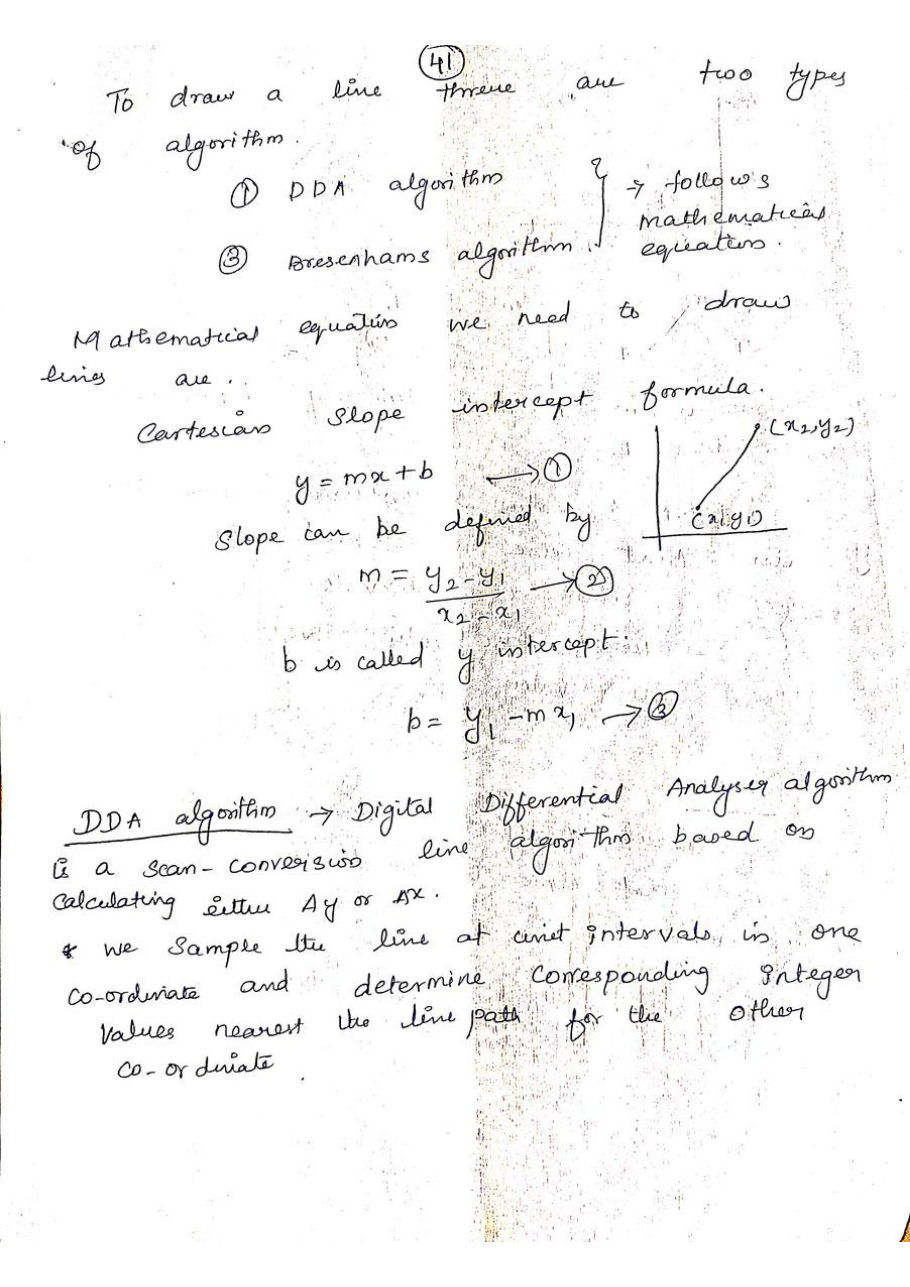 41
To draw a line threre are two types
of algorithm.
① DDA algorithm } → follows
mathematical
③ Bresenhams algorithm. equation.
Mathematical equation we need to draw
lines are.
Cartesian Slope intercept formula.
(x2,y2)
y = mx + b → ①
(x1y1)
Slope can be defined by
m = y2-y1 / x2-x1 → ②
b is called y intercept.
b = y1 - mx1 → ③
DDA algorithm → Digital Differential Analyser algorithm
is a Scan-conversion line algorithm based on
calculating either Δy or Δx.
* we Sample the line at unit intervals in one
Co-ordinate and determine Corresponding Integer
Values nearest the line path for the other
Co-ordinate.